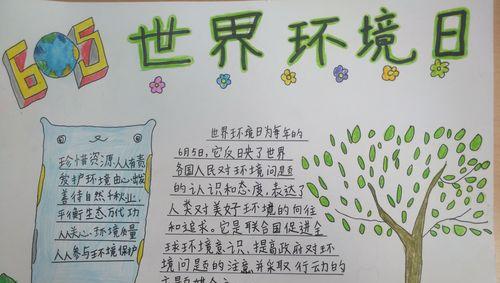 605
世界环境日
珍惜资源,人人有责
爱护环境由心出发
善待自然千秋业,
平衡生态万代功
人人关心环境质量
人人参与环境保护
世界环境日为每年的
6月5日,它反映了世界
各国人民对环境问题
的认识和态度,表达了
人类对美好环境的向往
和追求。它是联合国促进全
球环境意识、提高政府对环
境问题的注意并采取行动的
主要媒介之